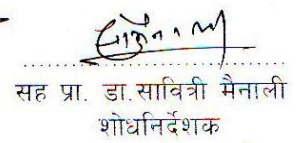 सह प्रा. डा.सावित्री मैनाली
शोधनिर्देशक